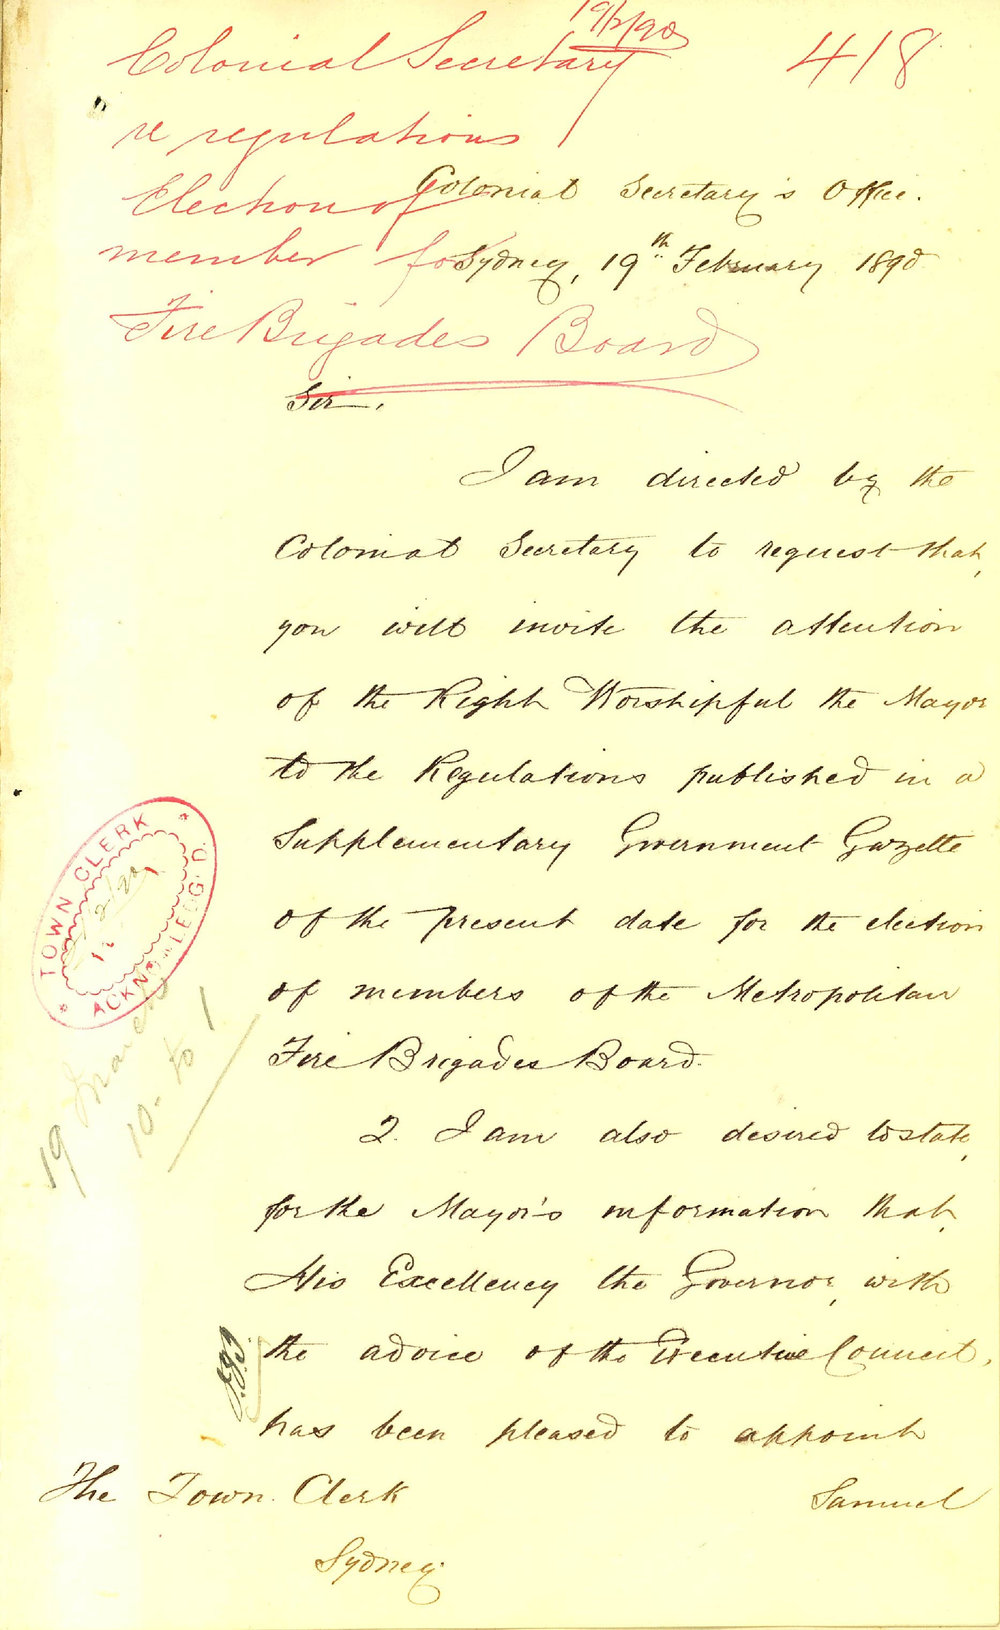 19/2/90
Colonial Secretary
418
re regulations
Election of
member for
Fire Brigades Board
Colonial Secretary's Office.
Sydney, 19th February 1890
Sir,
I am directed by the
Colonial Secretary to request that,
you will invite the attention
of the Right Worshipful the Mayor
to the Regulations published in a
Supplementary Government Gazette
of the present date for the election
of members of the Metropolitan
Fire Brigades Board.
2. I am also desired to state,
for the Mayor's information that,
His Excellency the Governor, with
the advice of the Executive Council,
has been pleased to appoint
Samuel
The Town Clerk
Sydney
TOWN CLERK
ACKNOWLEDG'D.
19 March
10. to 1